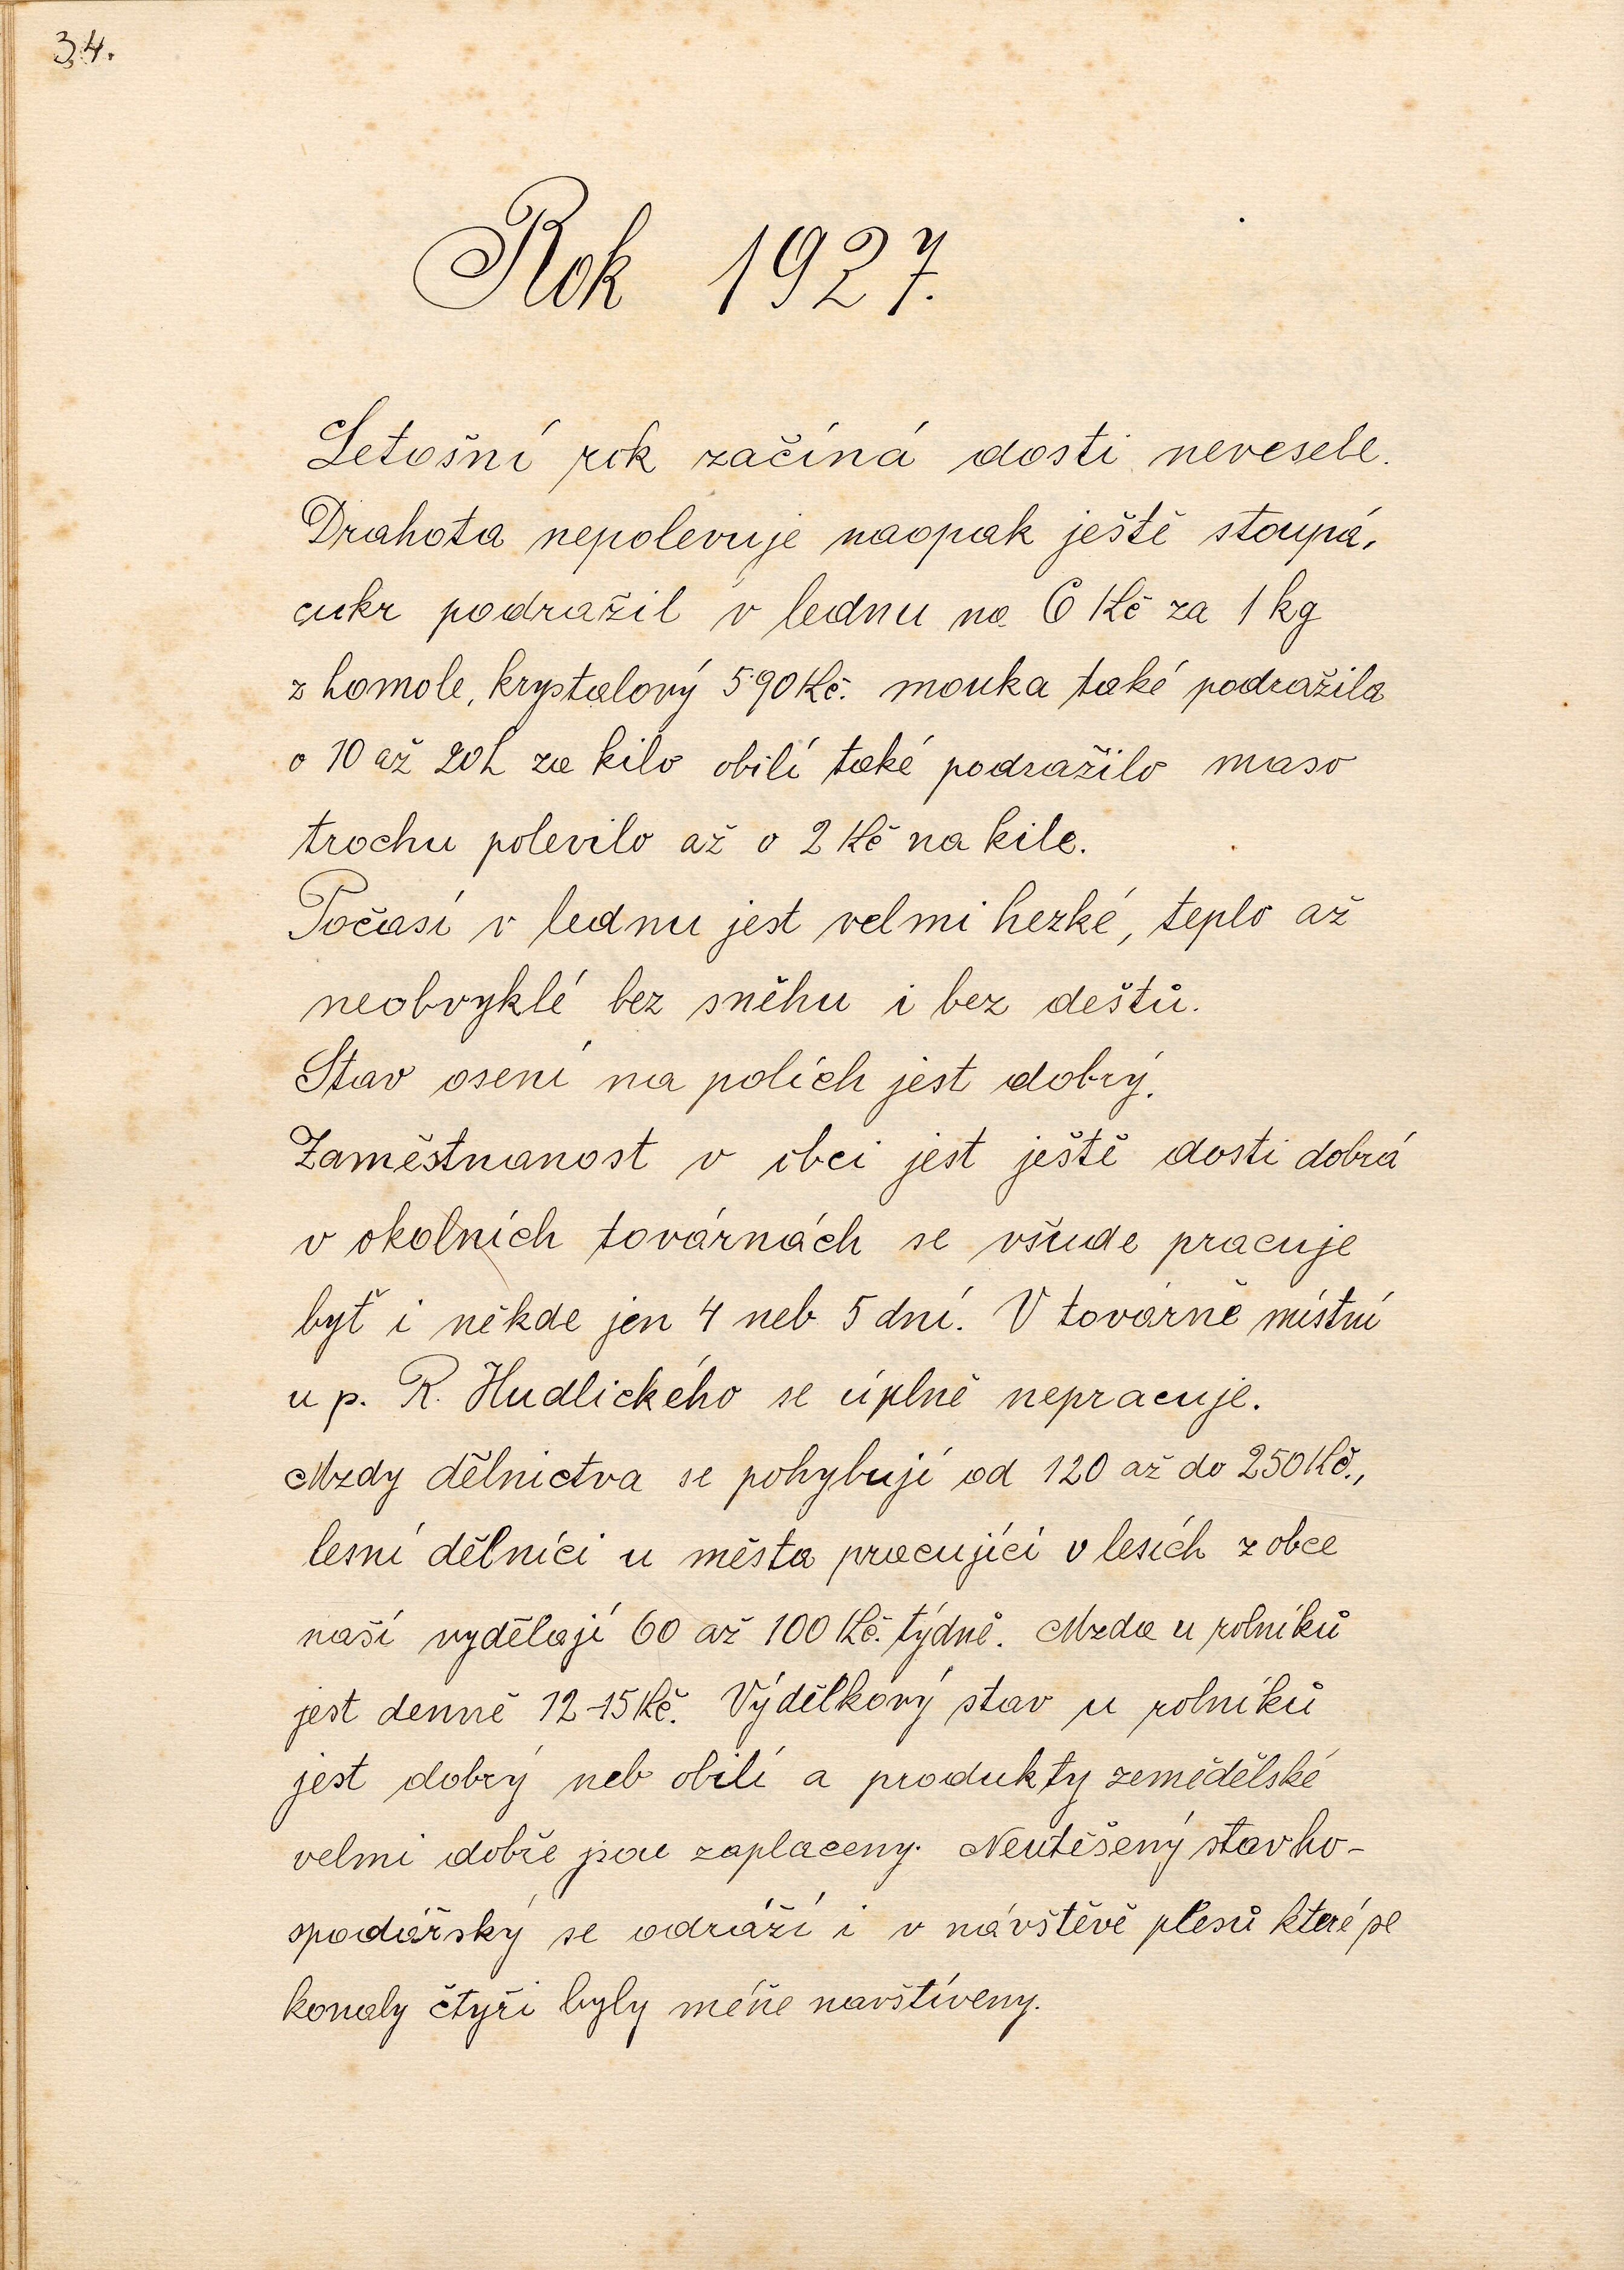 34.
Rok 1927.
Letošní rok začíná dosti nevesele.
Drahota nepolevuje naopak ještě stoupá,
cukr podražil v lednu na 6 Kč za 1 kg
z homole, krystalový 5·90 Kč. mouka také podražila
o 10 až 20 h za kilo obilí také podražilo maso
trochu polevilo až o 2 Kč na kile.
Počasí v lednu jest velmi hezké, teplo až
neobvyklé bez sněhu i bez deštů.
Stav osení na polích jest dobrý.
Zaměstnanost v obci jest ještě dosti dobrá
v okolních továrnách se všude pracuje
byť i někde jen 4 neb 5 dní. V továrně místní
u p. R. Hudlického se úplně nepracuje.
Mzdy dělnictva se pohybují od 120 až do 250 Kč.,
lesní dělníci u města pracující v lesích z obce
naší vydělají 60 až 100 Kč. týdně. Mzda u rolníků
jest denně 12-15 Kč. Výdělkový stav u rolníků
jest dobrý neb obilí a produkty zemědělské
velmi dobře jsou zaplaceny. Neutěšený stav ho-
spodářský se odráží i v návštěvě plesů které se
konaly čtyři byly méňe navštíveny.